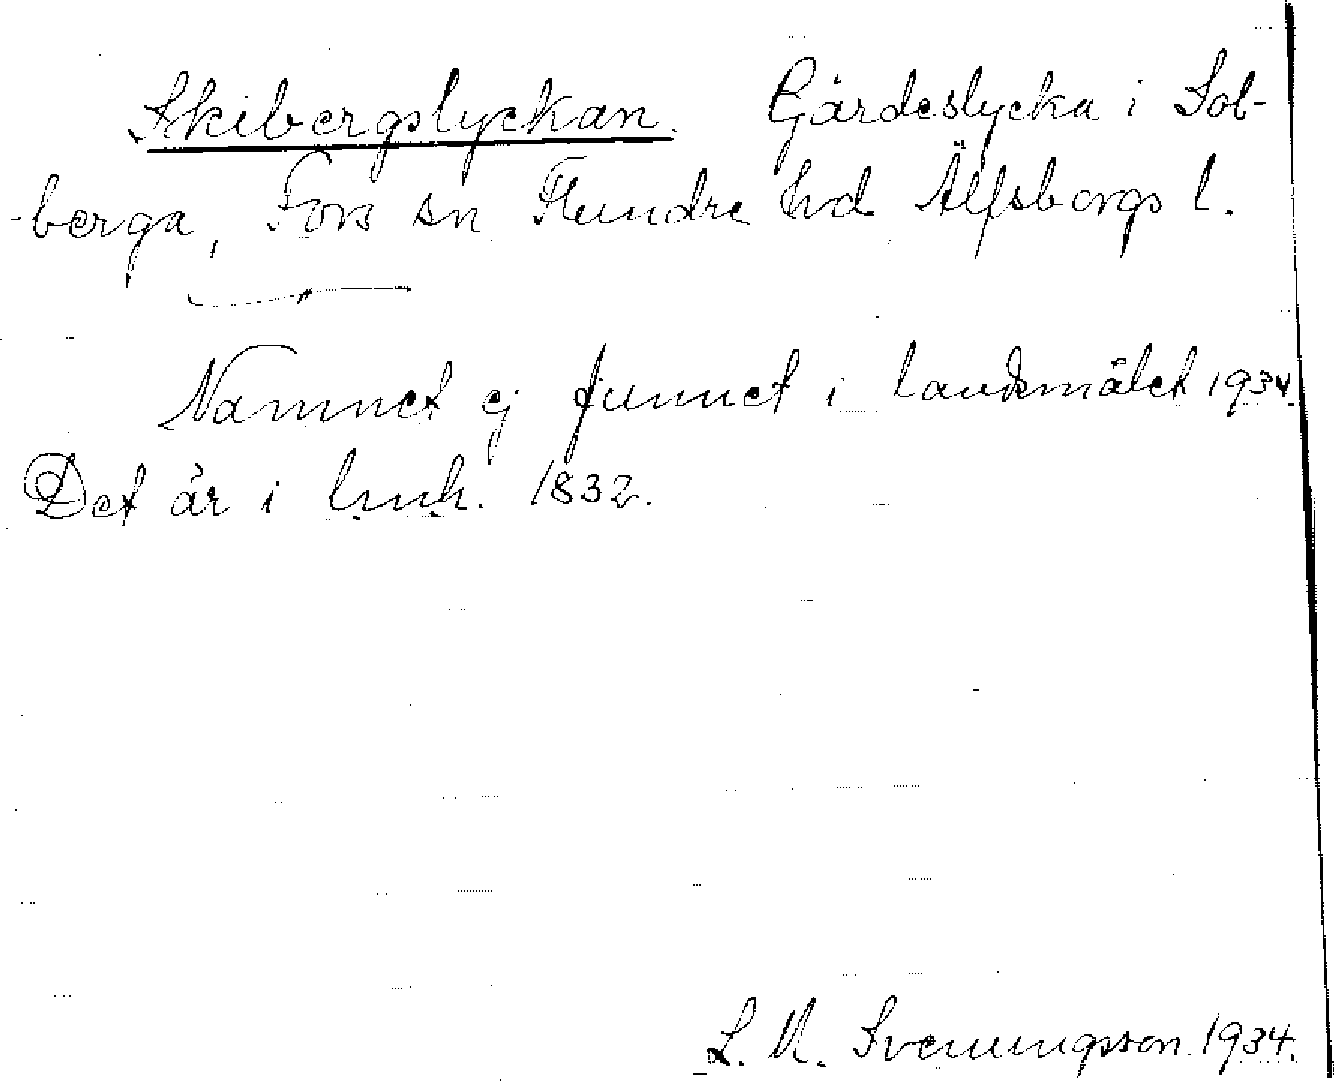 Skibergslyckan. Gärdeslycka i Sol-
-berga, Fors sn Flundre hrd Älfsborgs l.
Namnet ej funnet i landsmålet 1934.
Det är i bruk. 1832.
L. M. Svenungsson 1934.